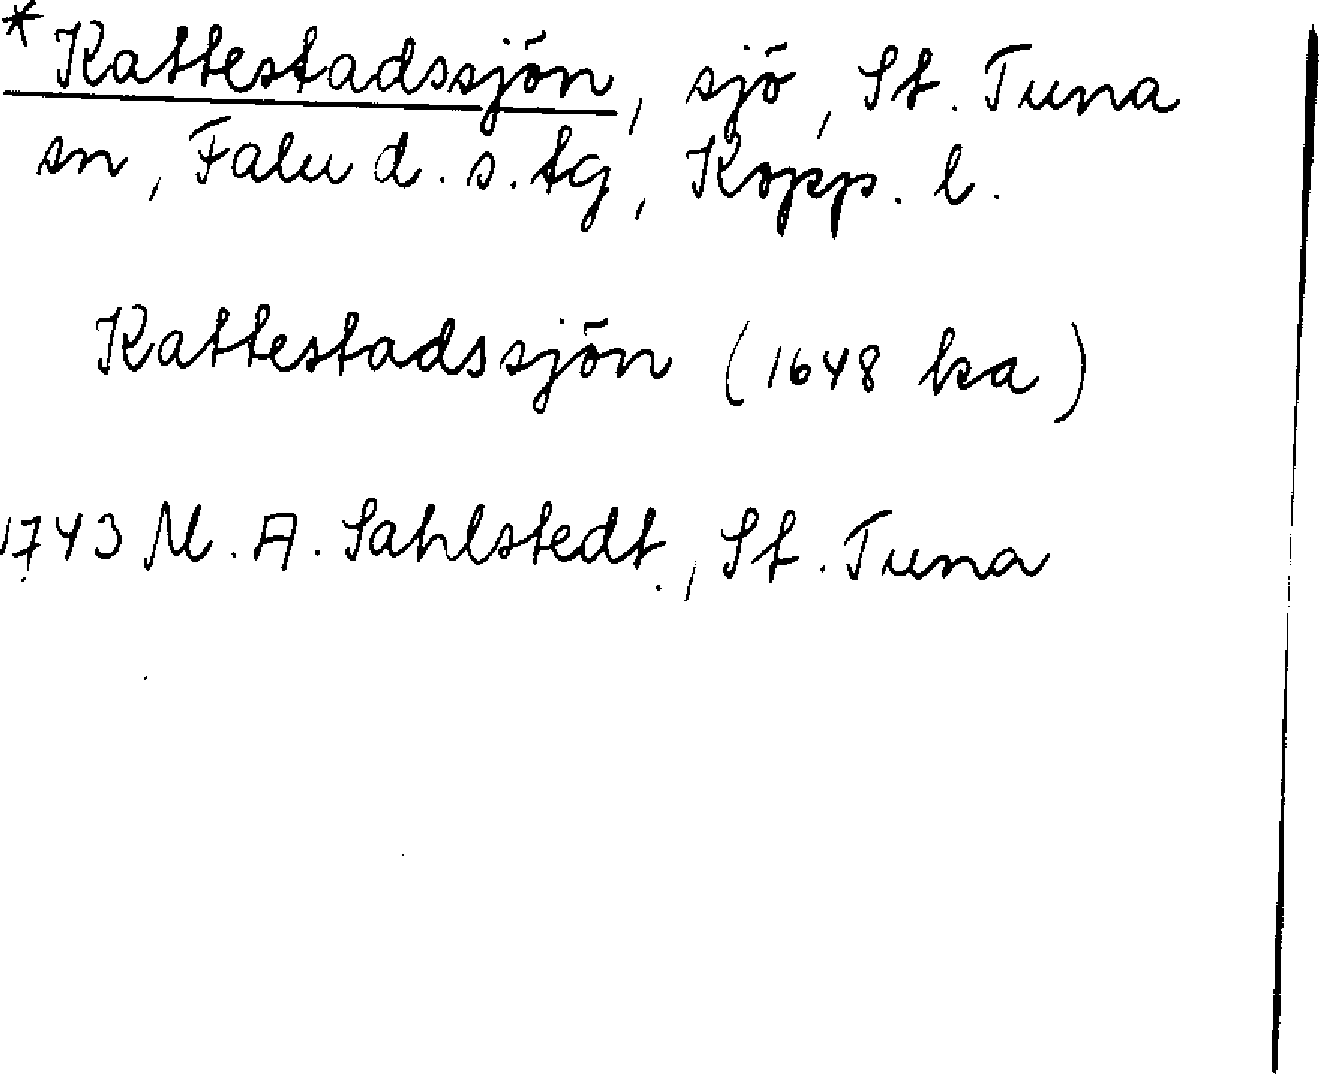 *Kattestadssjön, sjö, St. Tuna
sn, Falu d. s. tg, Kopp. l.
Kattestadssjön (1648 ka)
1743 M. A. Sahlstedt, St. Tuna